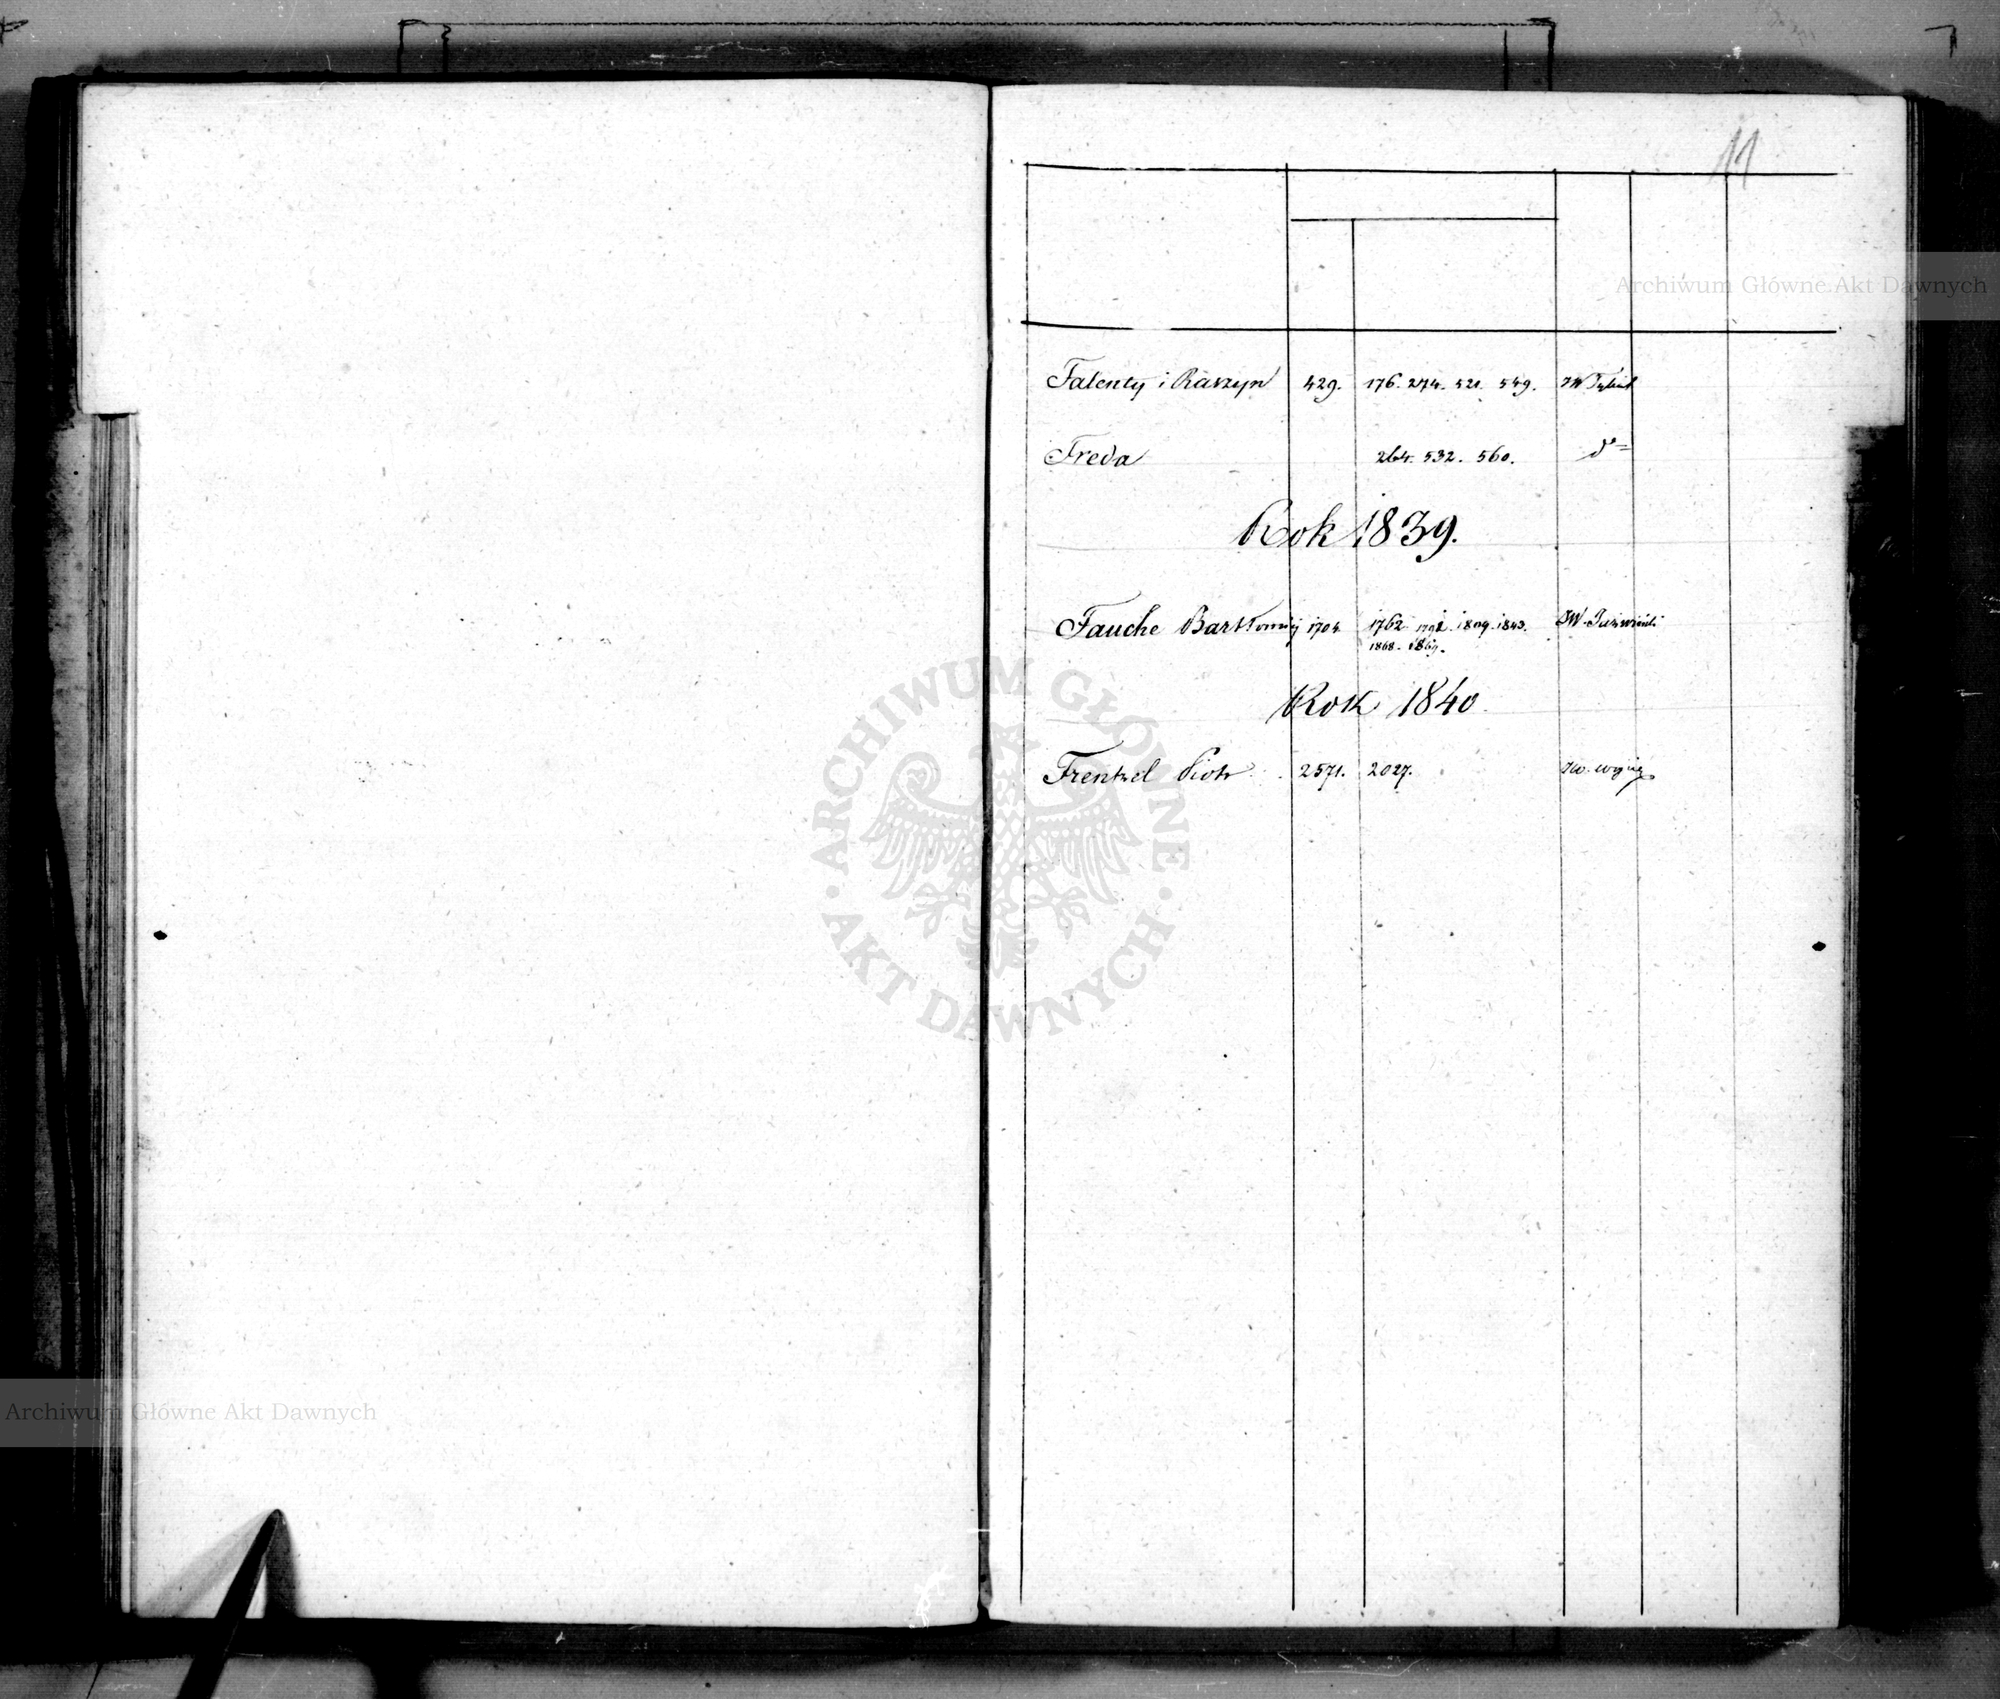 11
Archiwum Główne Akt Dawnych
Falenty i Raszyn 429. 176. 274. 521. 549. JW
Freda 264. 532. 560. d°
Rok 1839.
Fauche Bartłomiej 1704 1762. 1792. 1809. 1843. JW.
1868. 1869.
Rok 1840
Frentzel Piotr 2571. 2027.
ARCHIWUM GŁÓWNE · AKT DAWNYCH ·
Archiwum Główne Akt Dawnych